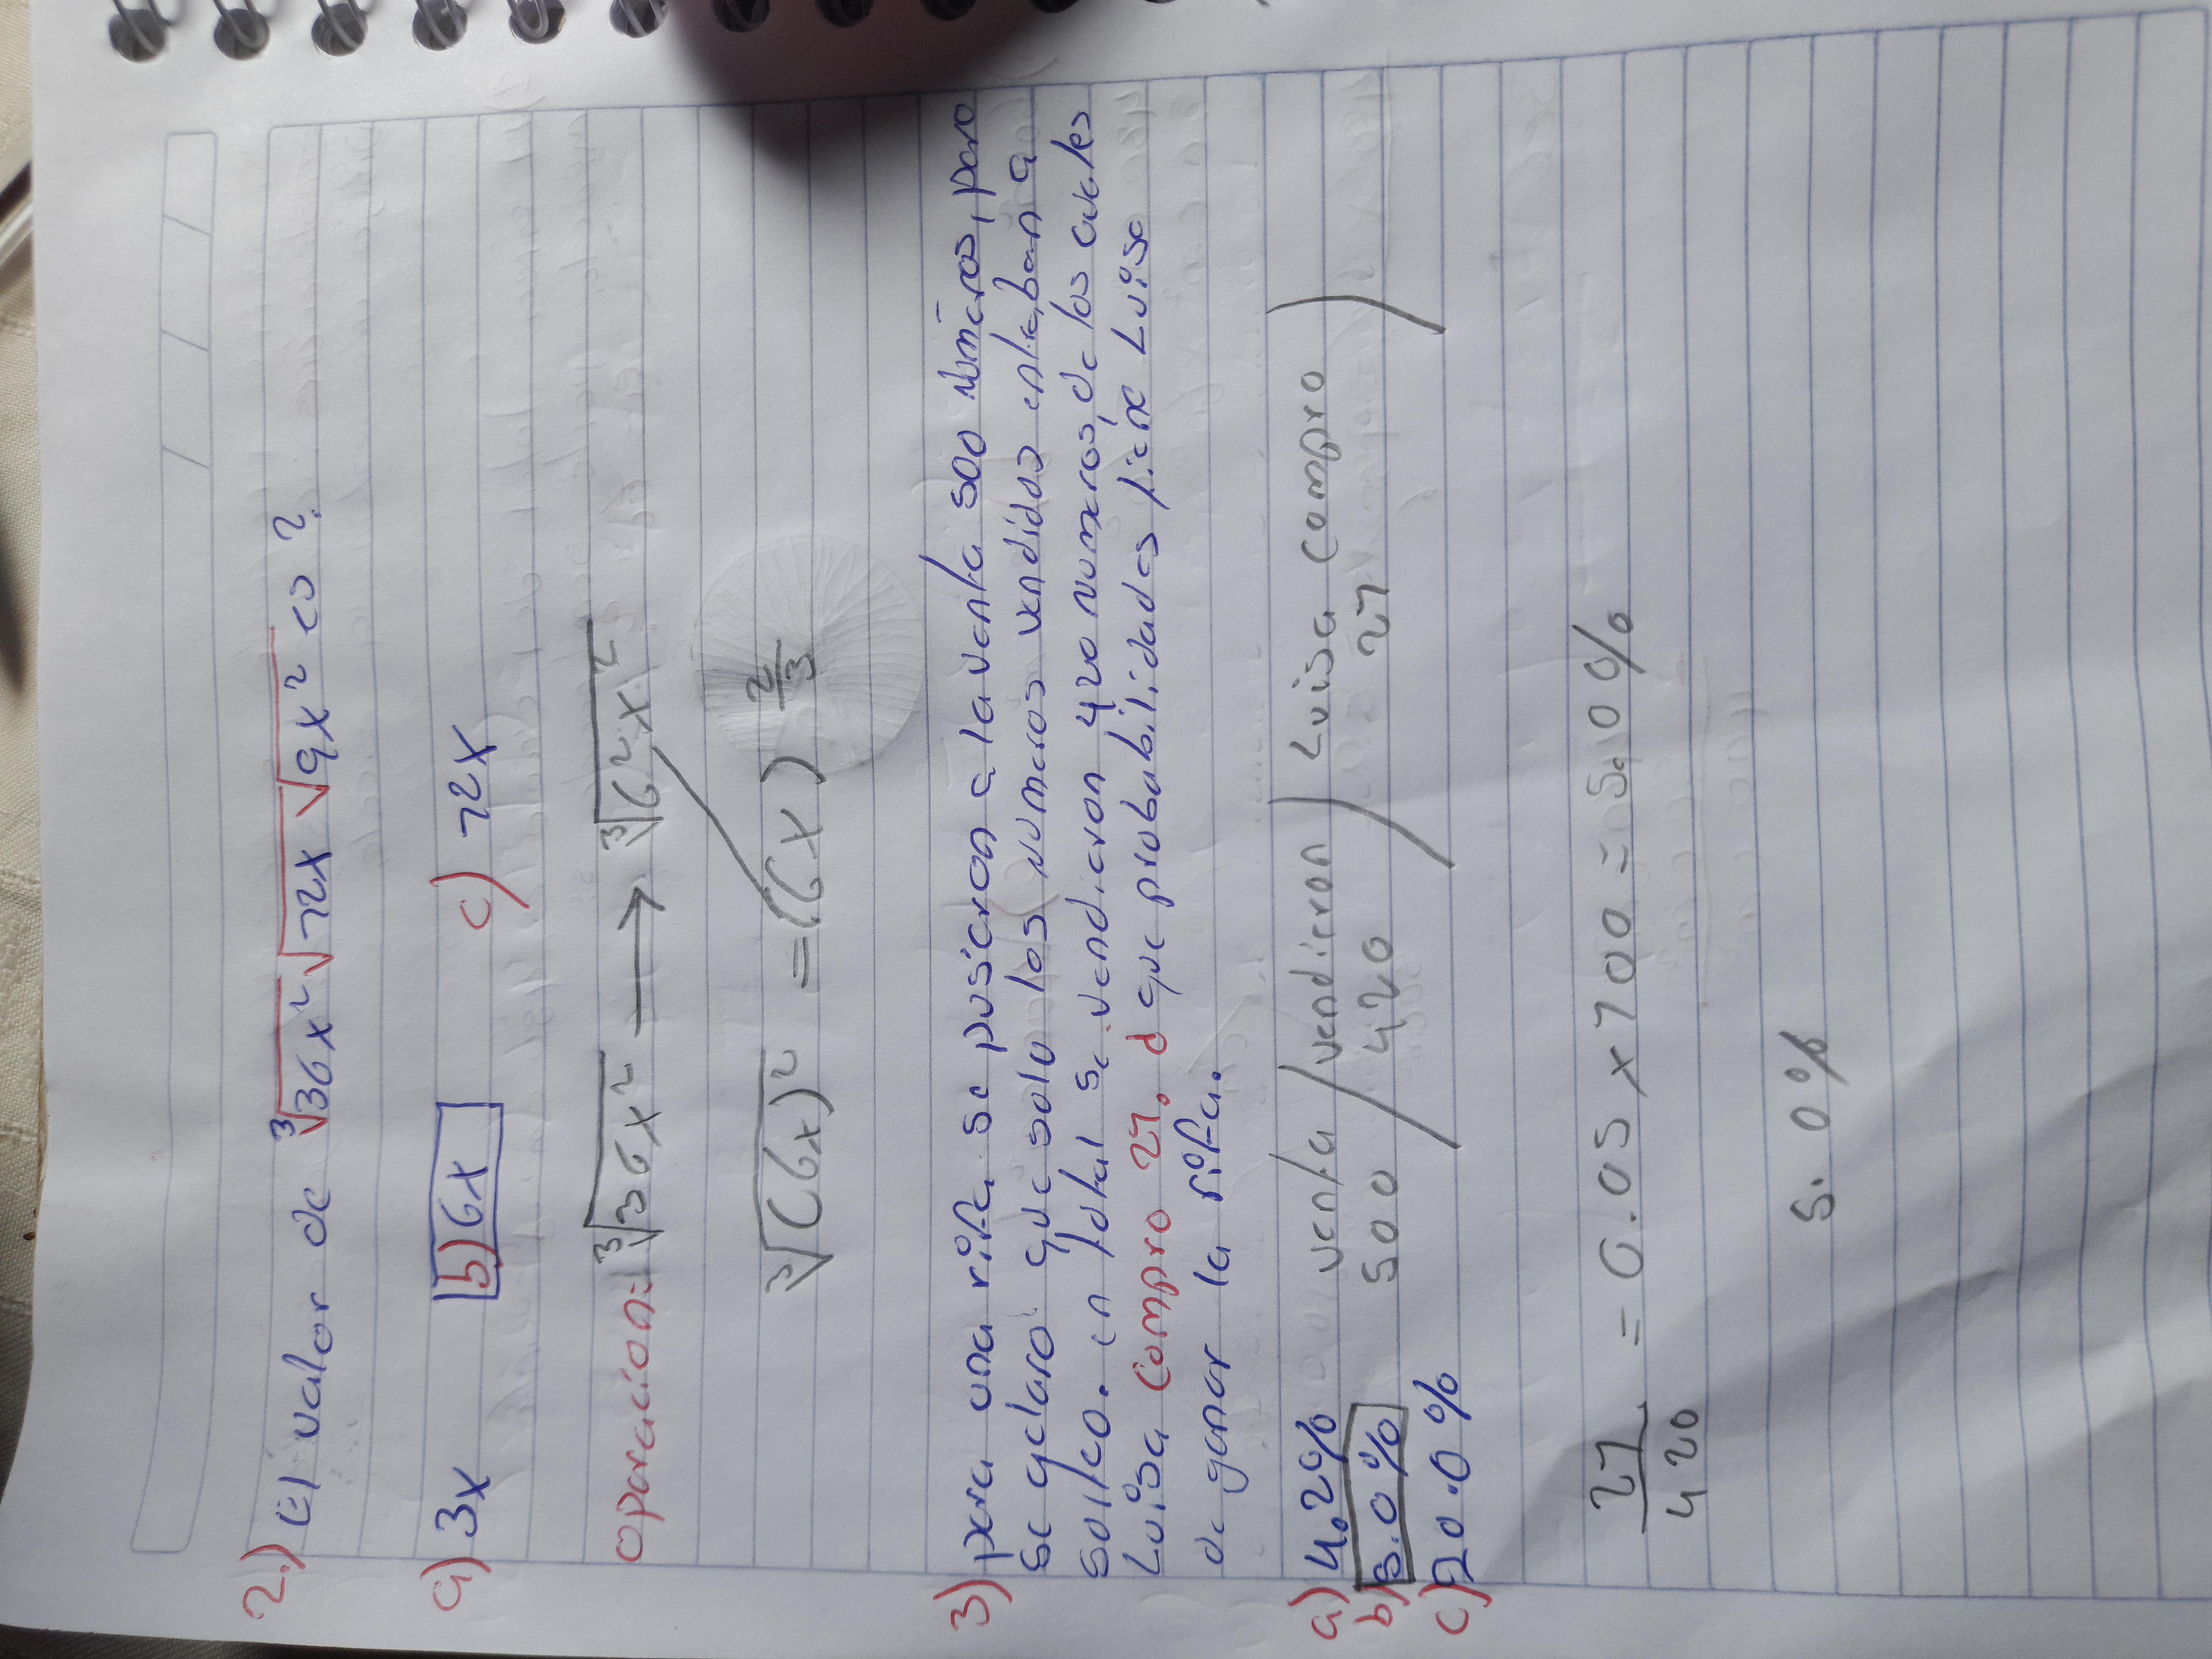 2.) El valor de ∛36x² √12x √9x² es?
a) 3x b) 6x c) 12x
operación: ∛36x² → ∛6²x²
∛(6x)² = (6x) 2/3
3) para una rifa se pusieron a la venta 500 números, pero
se aclaro que solo los numeros vendidos entraban a
sorteo. en total se vendieron 420 numeros, de los cuales
Luisa compro 21. d que probabilidades tiene Luisa
de ganar la rifa.
a) 4.2% venta / vendieron / Luisa compro /
b) 5.0% 500 / 420 21
c) 20.0%
21/420 = 0.05 x 100 = 5.0%
5.0%